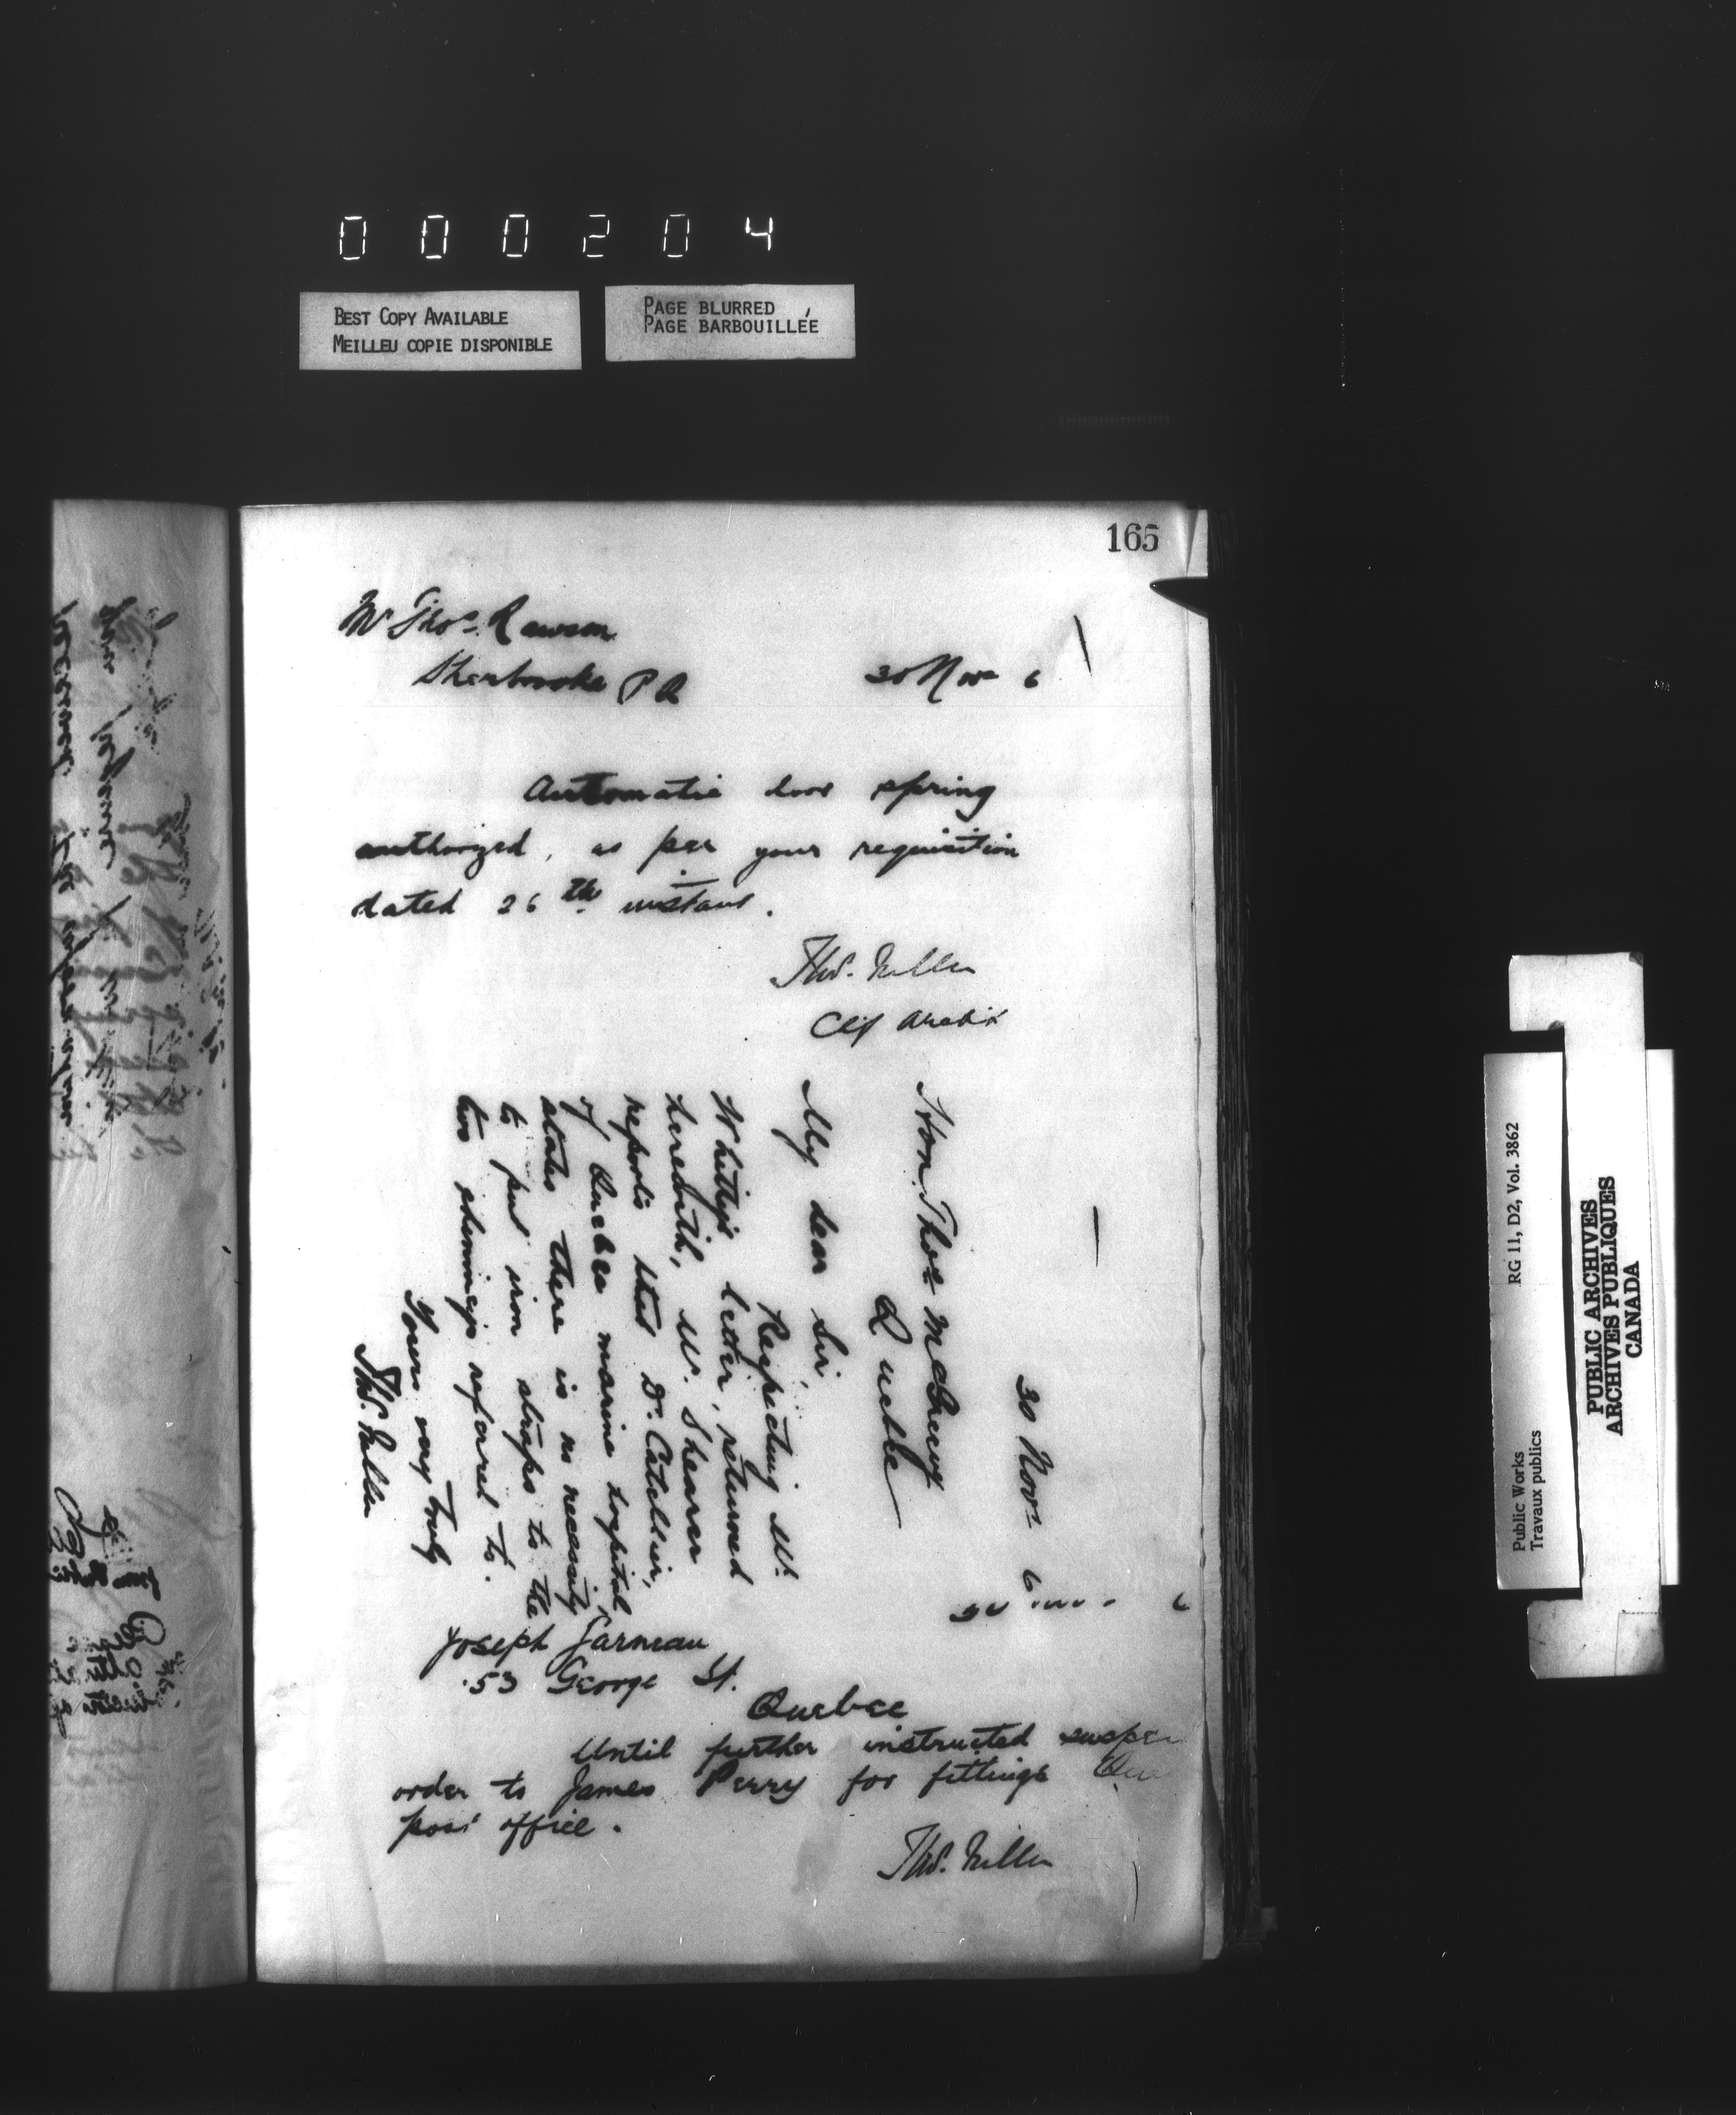 000204
BEST COPY AVAILABLE
MEILLEU COPIE DISPONIBLE
PAGE BLURRED
PAGE BARBOUILLÉE
165
Mr Thos. Rawson
Sherbrooke P Q
30 Novr 6
Automatic door spring
authorized, as per your requisition
dated 26th instant.
Thos. Fuller
Chf Archt
30 Novr 6
Hon. Thos McGreevy
Quebec
My dear Sir,
Respecting Mr.
Whitty's letter, returned
herewith, Mr. Shearer
reports that Dr. Catellier,
of Quebec marine hospital
states there is no necessity
to put iron straps to the
two chimneys referred to.
Yours very truly
Thos. Fuller
30 Nov. 6
Joseph Garneau
53 George St.
Quebec
Until further instructed suspen
order to James Perry for fittings Que
post office.
Thos. Fuller
Public Works
Travaux publics
RG 11, D2, Vol. 3862
PUBLIC ARCHIVES
ARCHIVES PUBLIQUES
CANADA